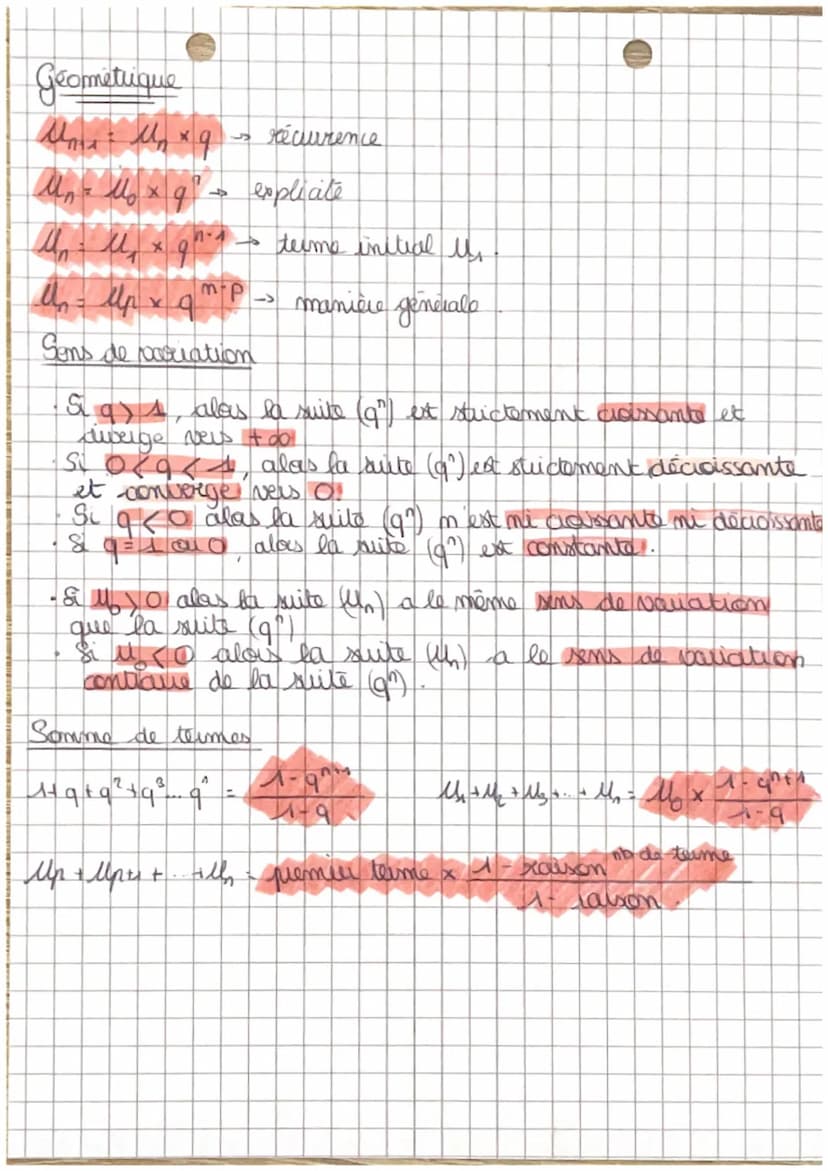 Géométrique
Uₙ₊₁ = Uₙ × q → récurrence
Uₙ = U₀ × qⁿ → explicite
Uₙ = U₁ × qⁿ⁻¹ → terme initial U₁.
Uₙ = Up × qⁿ⁻ᵖ → manière générale
Sens de variation
· Si q > 1, alors la suite (qⁿ) est strictement croissante et
diverge vers +∞
· Si 0 < q < 1, alors la suite (qⁿ) est strictement décroissante
et converge vers 0.
· Si q < 0 alors la suite (qⁿ) n'est ni croissante ni décroissante
· Si q = 1 ou 0, alors la suite (qⁿ) est constante.
· Si U₀ > 0 alors la suite (Uₙ) a le même sens de variation
que la suite (qⁿ)
· Si U₀ < 0 alors la suite (Uₙ) a le sens de variation
contraire de la suite (qⁿ).
Somme de termes
1+q+q²+q³... qⁿ = (1-qⁿ⁺¹)/(1-q) U₁+U₂+U₃+...+Uₙ = U₀ × (1-qⁿ⁺¹)/(1-q)
Up + Up+1 + ... + Uₙ = premier terme × (1 - raison^nb de terme)/(1 - raison).